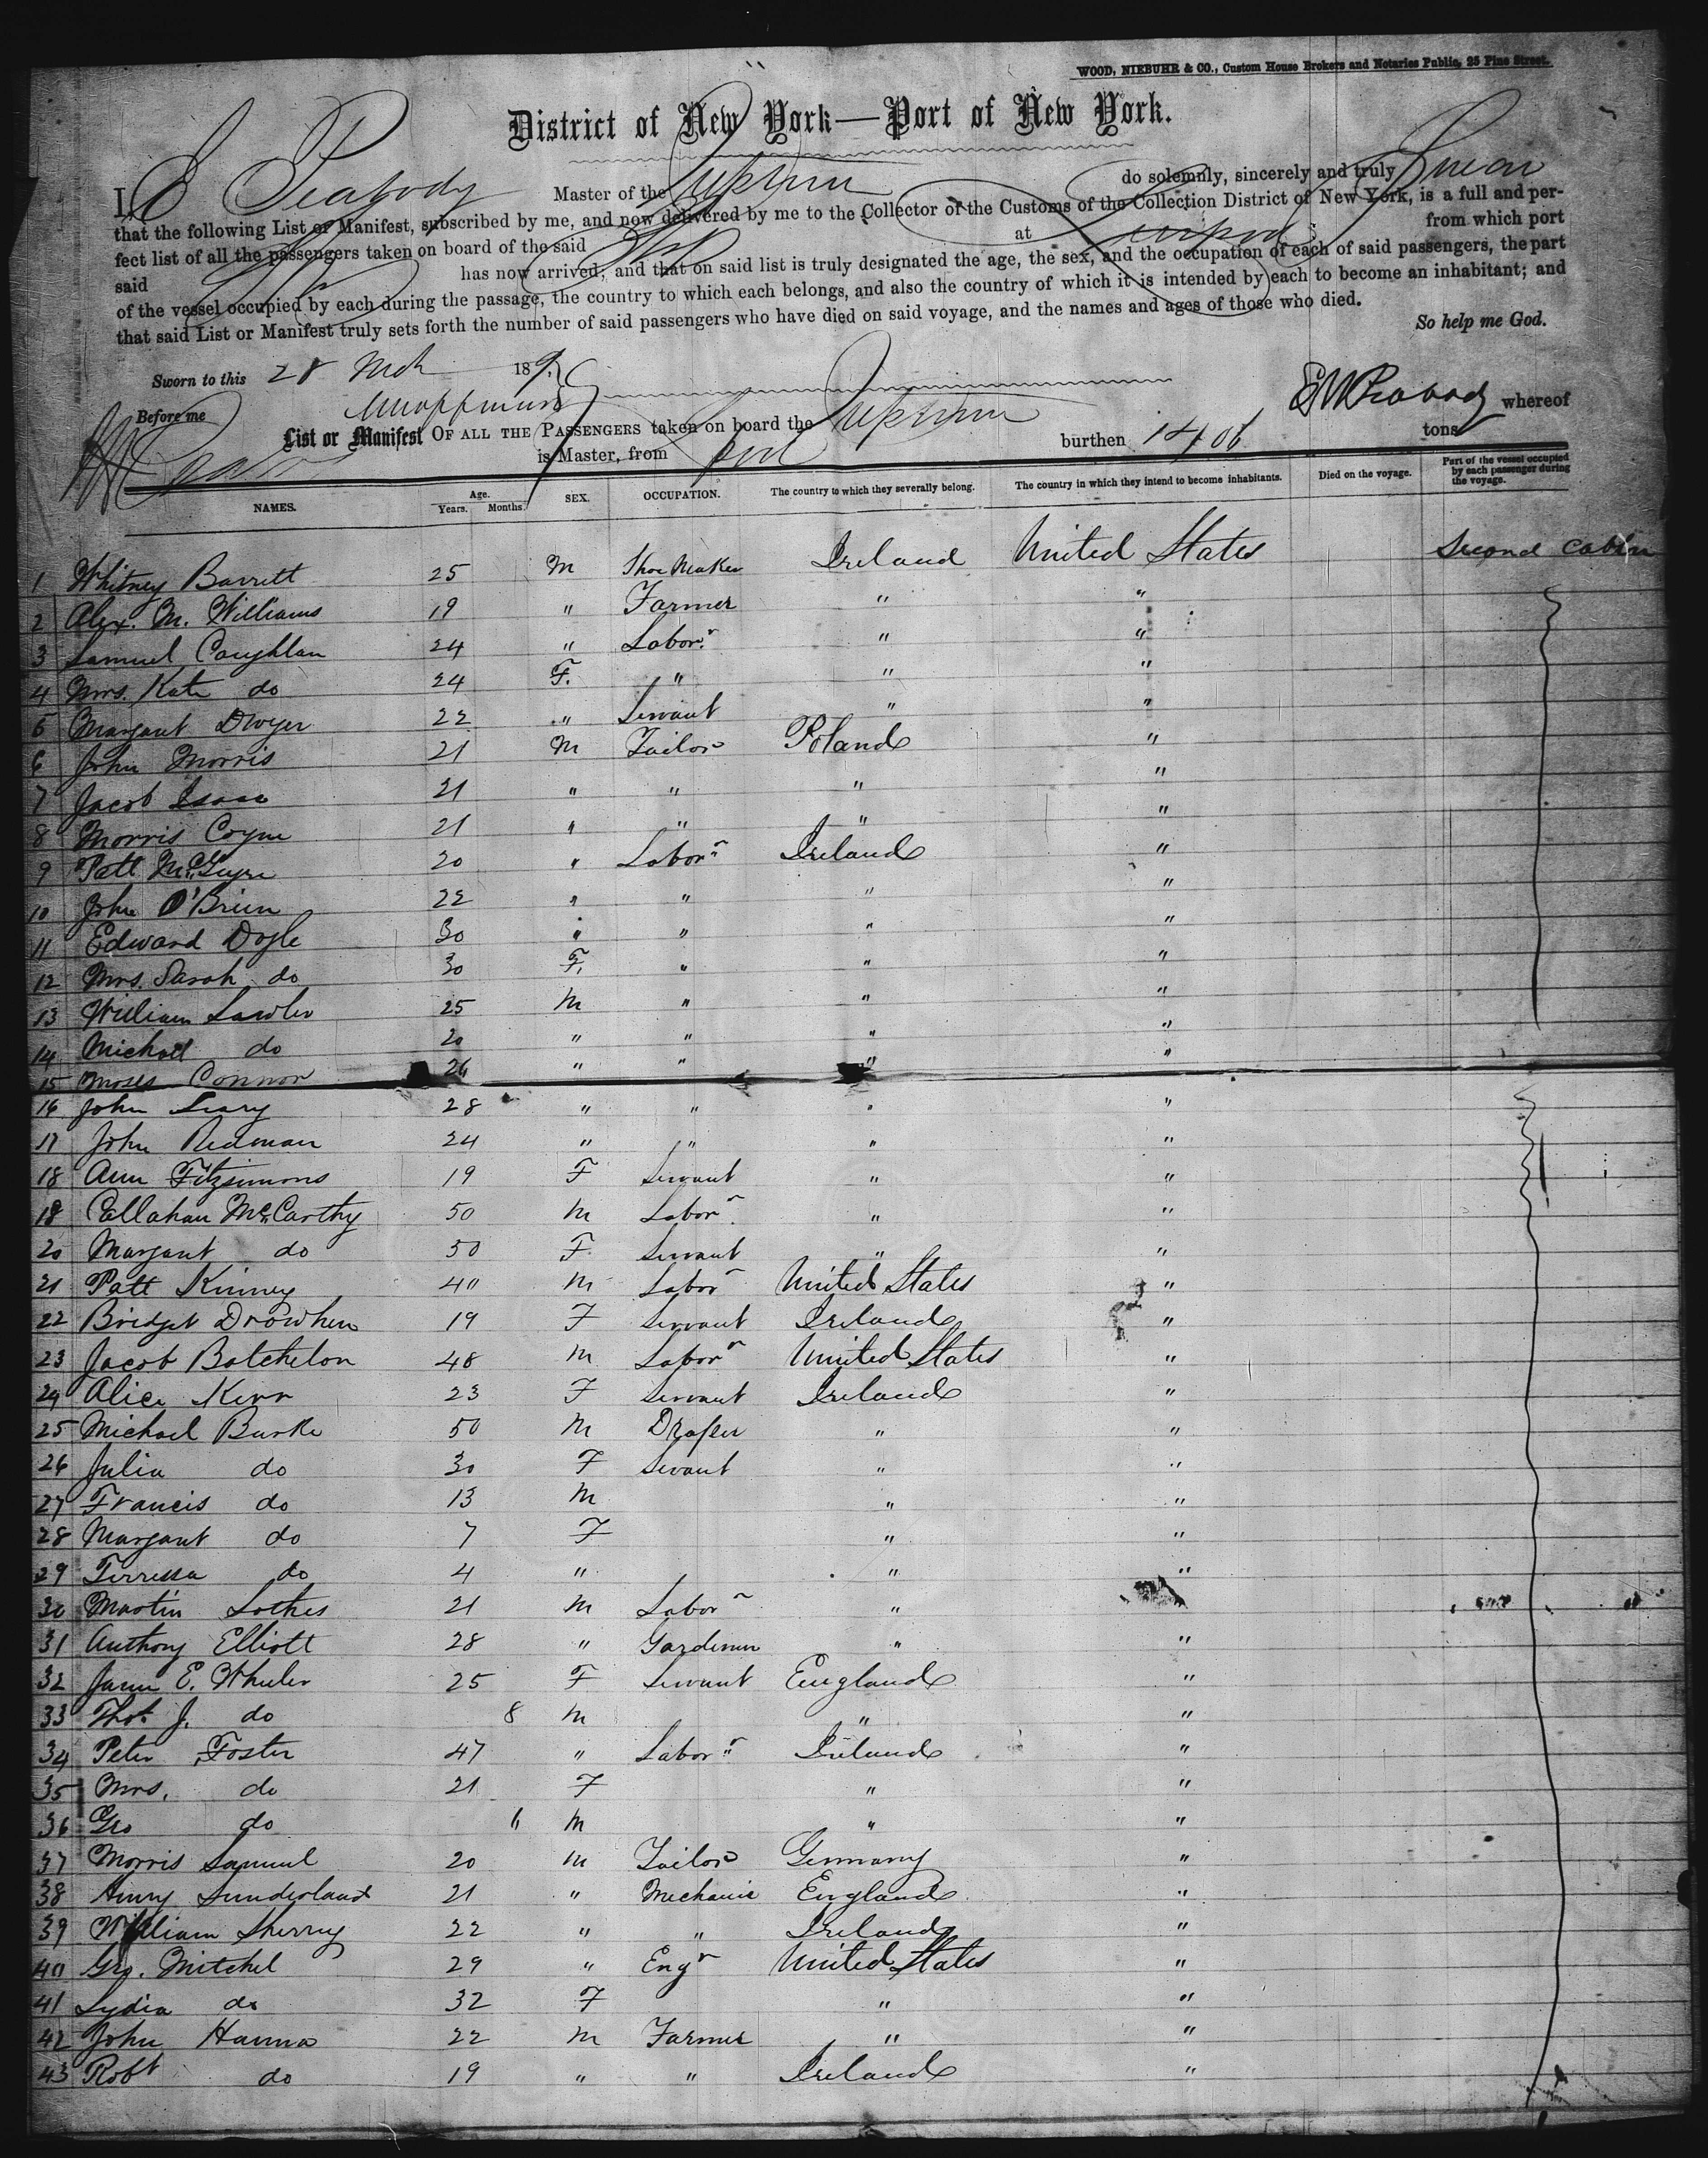 WOOD, NIEBUHR & CO., Custom House Brokers and Notaries Public, 25 Pine Street.
District of New York—Port of New York.
I, E Peabody Master of the Neptune do solemnly, sincerely and truly Swear
that the following List or Manifest, subscribed by me, and now delivered by me to the Collector of the Customs of the Collection District of New York, is a full and per-
fect list of all the passengers taken on board of the said Ship at Liverpool from which port
said Ship has now arrived; and that on said list is truly designated the age, the sex, and the occupation of each of said passengers, the part
of the vessel occupied by each during the passage, the country to which each belongs, and also the country of which it is intended by each to become an inhabitant; and
that said List or Manifest truly sets forth the number of said passengers who have died on said voyage, and the names and ages of those who died.
So help me God.
Sworn to this 28 Mch 18
Before me
E W Peabody whereof
List or Manifest OF ALL THE PASSENGERS taken on board the Neptune
is Master, from burthen 1406 tons
NAMES. Age. Years. Months. SEX. OCCUPATION. The country to which they severally belong. The country in which they intend to become inhabitants. Died on the voyage. Part of the vessel occupied by each passenger during the voyage.
1 Whitney Barrett 25 M Shoe Maker Ireland United States Second Cabin
2 Alex. M. Williams 19 " Farmer " "
3 Samuel Coughlan 24 " Labor.r " "
4 Mrs. Kate do 24 F. " " "
5 Margaret Dwyer 22 " Servant " "
6 John Morris 21 M Tailor Poland "
7 Jacob Isaac 21 " " " "
8 Morris Coyne 21 " " " "
9 Patt McGuyre 20 " Labor.r Ireland "
10 John O'Brien 22 " " " "
11 Edward Doyle 30 " " " "
12 Mrs. Sarah do 30 F. " " "
13 William Lawler 25 M " " "
14 Michael do 20 " " " "
15 Moses Connor 26 " " " "
16 John Leary 28 " " " "
17 John Redman 24 " " " "
18 Ann Fitzsimons 19 F Servant " "
18 Callahan McCarthy 50 M Labor.r " "
20 Margaret do 50 F Servant " "
21 Patt Kinney 40 M Labor r United States "
22 Bridget 19 F Servant Ireland "
23 Jacob Batchelon 48 M Labor r United States "
24 Alice Kerr 23 F Servant Ireland "
25 Michael Burke 50 M Draper " "
26 Julia do 30 F Servant " "
27 Francis do 13 M " "
28 Margaret do 7 F " "
29 Terressa do 4 " " "
30 Martin 21 M Labor r " "
31 Anthony Elliott 28 " Gardener " "
32 Jane E. Wheeler 25 F Servant England "
33 Thos. J. do 8 M " "
34 Peter Foster 47 " Labor.r Ireland "
35 Mrs. do 21 F " "
36 Geo do 6 M " "
37 Morris Samuel 20 M Tailor Germany "
38 Henry Sunderland 21 " Mechanic England "
39 William Sherry 22 " " Ireland "
40 Geo. Mitchel 29 " Eng r United States "
41 Lydia do 32 F " "
42 John Hanna 22 M Farmer " "
43 Robt do 19 " " Ireland "